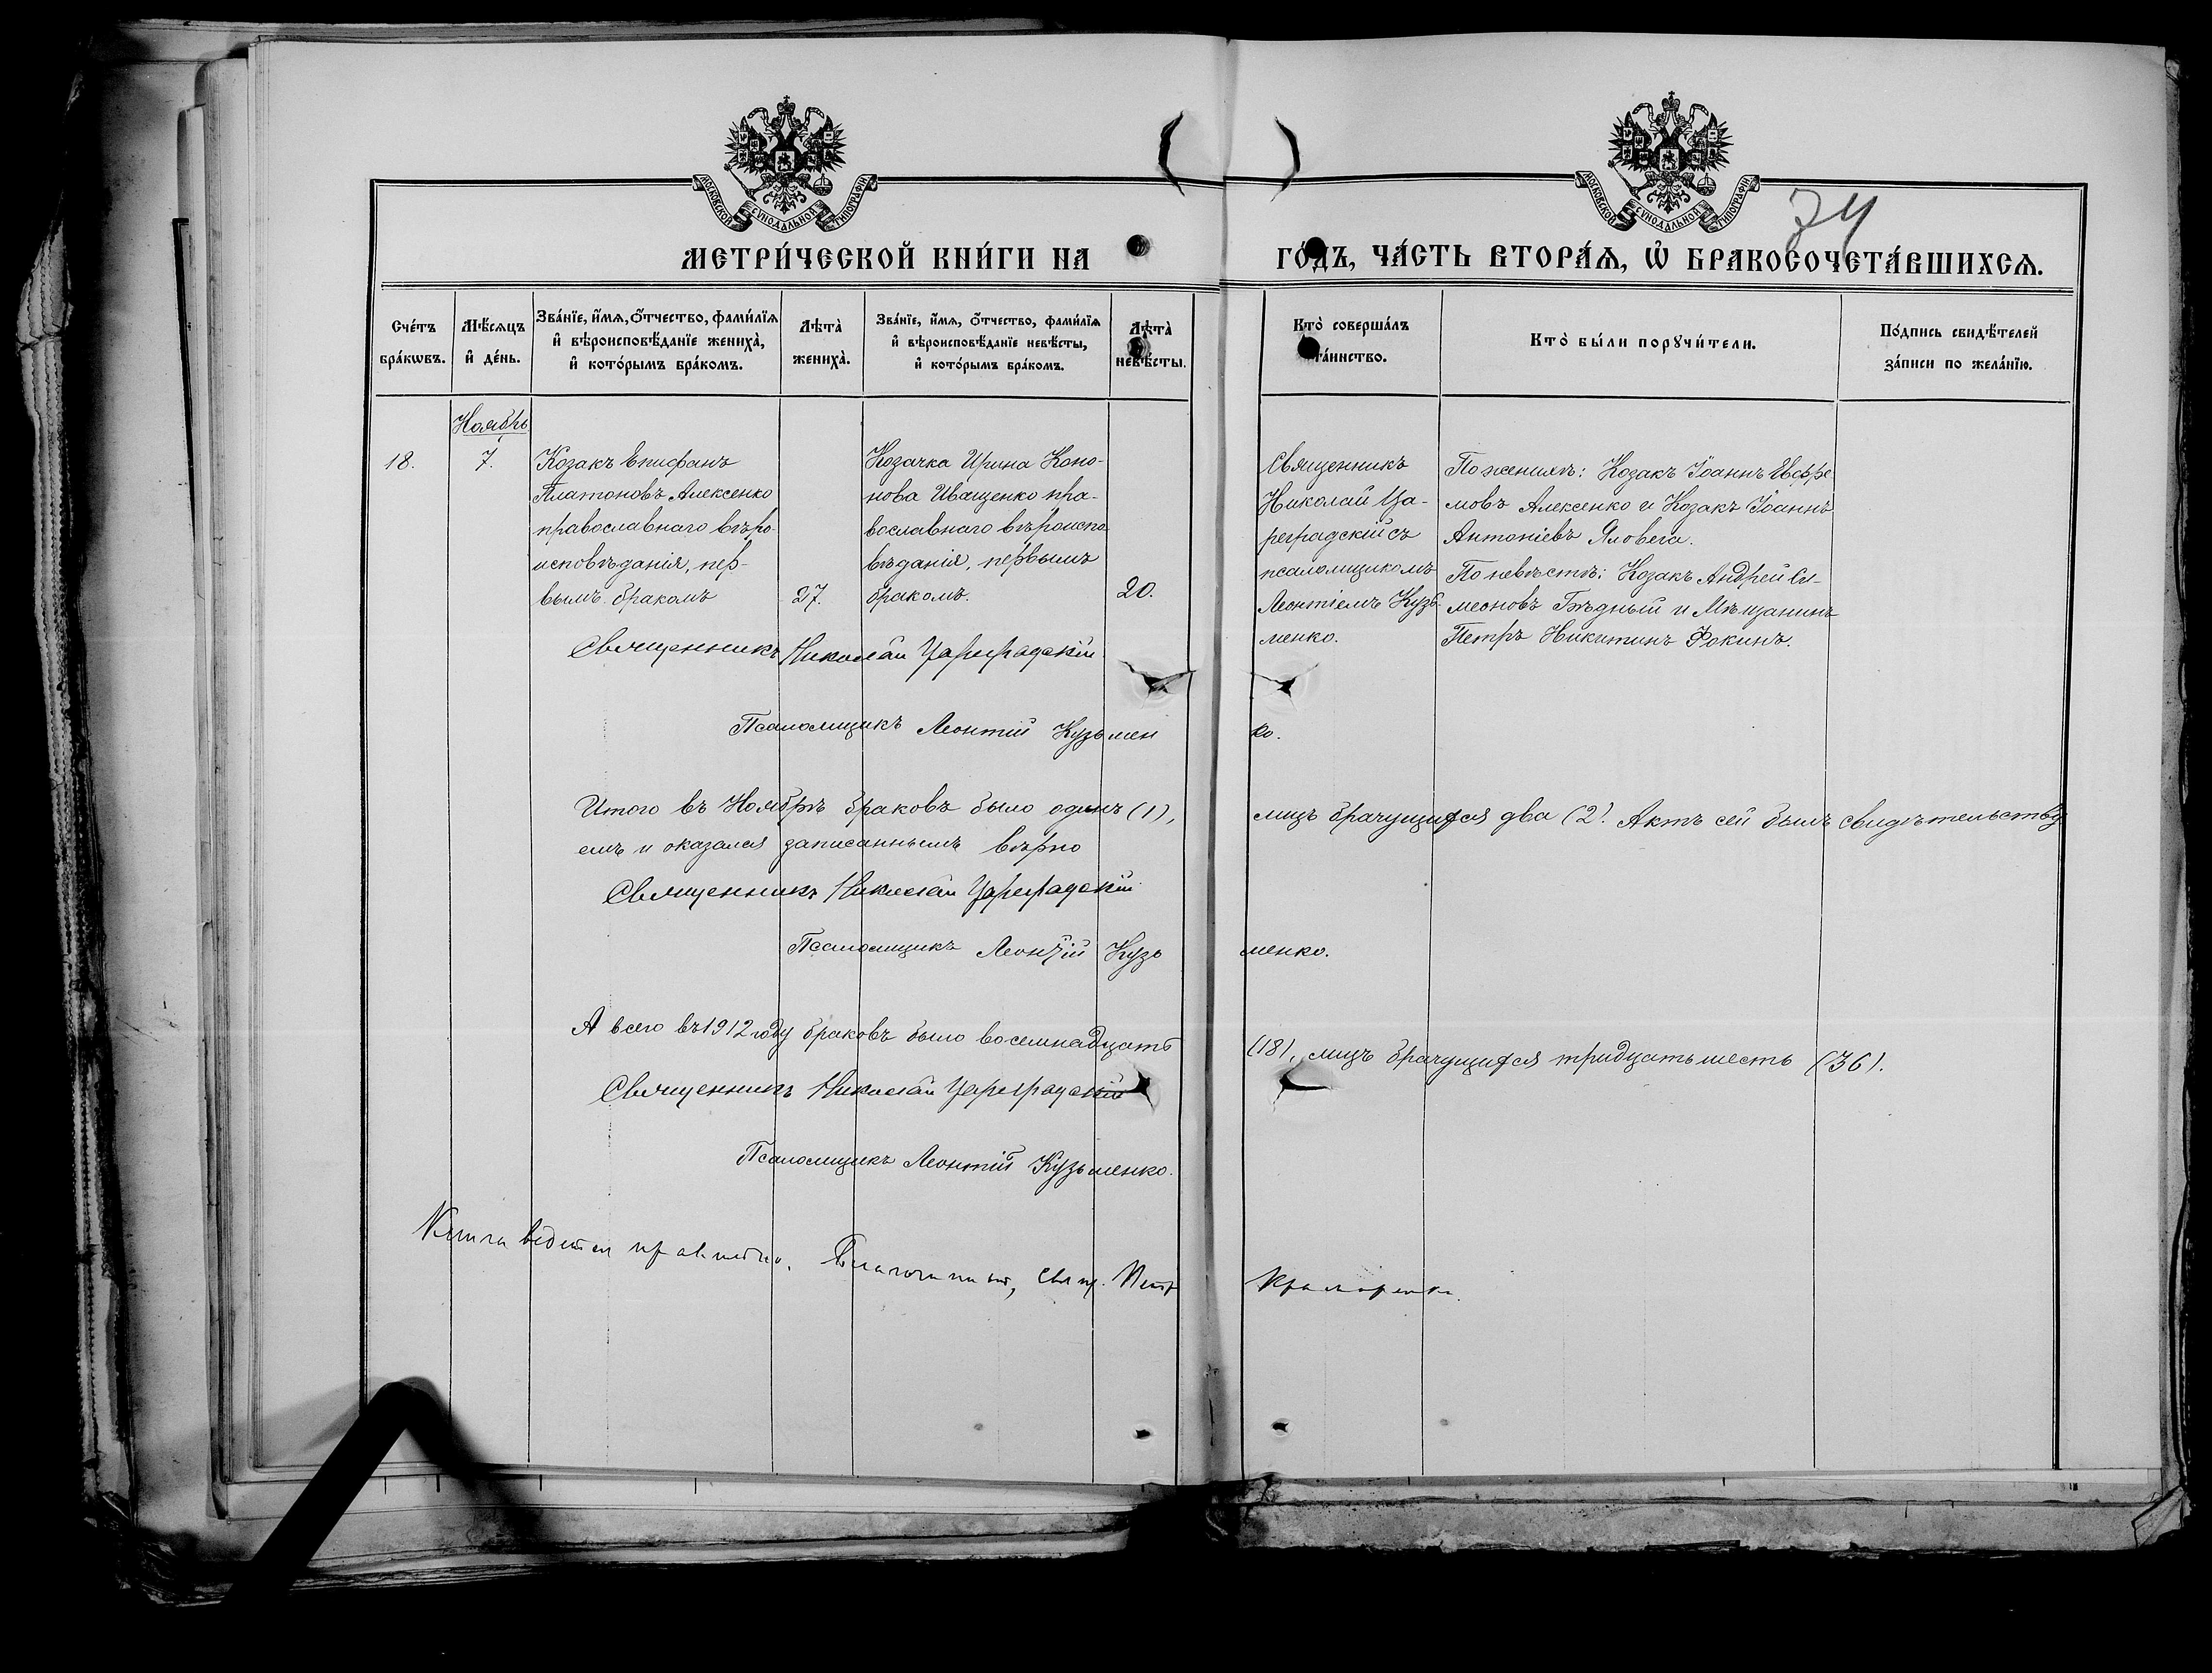 МОСКОВСКОЙ СѴНОДАЛЬНОЙ ТИПОГРАФІИ
МОСКОВСКОЙ СѴНОДАЛЬНОЙ ТИПОГРАФІИ
МЕТРИ́ЧЕСКОЙ КНИ́ГИ НА ГО́ДЪ, ЧА́СТЬ ВТОРА́Ѧ, Ѽ БРАКОСОЧЕТА́ВШИХСѦ.
Сче́тъ бра́кѡвъ.
Мѣ́сѧцъ и҆ де́нь.
Зва́нїе, и҆́мѧ, ѻ҆́тчество, фами́лїѧ
и҆ вѣроисповѣ́данїе жениха̀,
и҆ кото́рымъ бра́комъ.
Лѣта̀ жениха̀.
Зва́нїе, и҆́мѧ, ѻ҆́тчество, фами́лїѧ
и҆ вѣроисповѣ́данїе невѣ́сты,
и҆ кото́рымъ бра́комъ.
Лѣта̀ невѣ́сты.
Кто̀ соверша́лъ та́инство.
Кто̀ бы́ли порꙋчи́тели.
По́дпись свидѣ́телей
за́писи по жела́нїю.
Ноябрь
18.
7.
Козакъ Епифанъ
Платоновъ Алексенко
православнаго вѣро-
исповѣданія, пер-
вымъ бракомъ
27.
Козачка Ирина Коно-
нова Иващенко пра-
вославнаго вѣроиспо-
вѣданія, первымъ
бракомъ.
20.
Священникъ
Николай Ца-
реградскій съ
псаломщикомъ
Леонтіемъ Кузь-
менко.
По женихѣ: Козакъ Іоаннъ Евфре
мовъ Алексенко и Козакъ Іоаннъ
Антоніевъ Яловега.
По невѣстѣ: Козакъ Андрей Си-
меоновъ Бѣдный и Мѣщанинъ
Петръ Никитинъ Фокинъ.
Священникъ Николай Цареградскій
Псаломщикъ Леонтій Кузьмен ко.
Итого въ Ноябрѣ браковъ было одинъ (1), лицъ брачущихся два (2). Актъ сей былъ свидѣтельству
емъ и оказался записаннымъ вѣрно
Священникъ Николай Цареградскій
Псаломщикъ Леонтій Кузь менко.
А всего въ 1912 году браковъ было восемнадцать (18), лицъ брачущихся тридцать шесть (36).
Священникъ Николай Цареградскій
Псаломщикъ Леонтій Кузьменко.
Книга ведется правильно. Благочинный, Свящ. Петр Крамаренко.